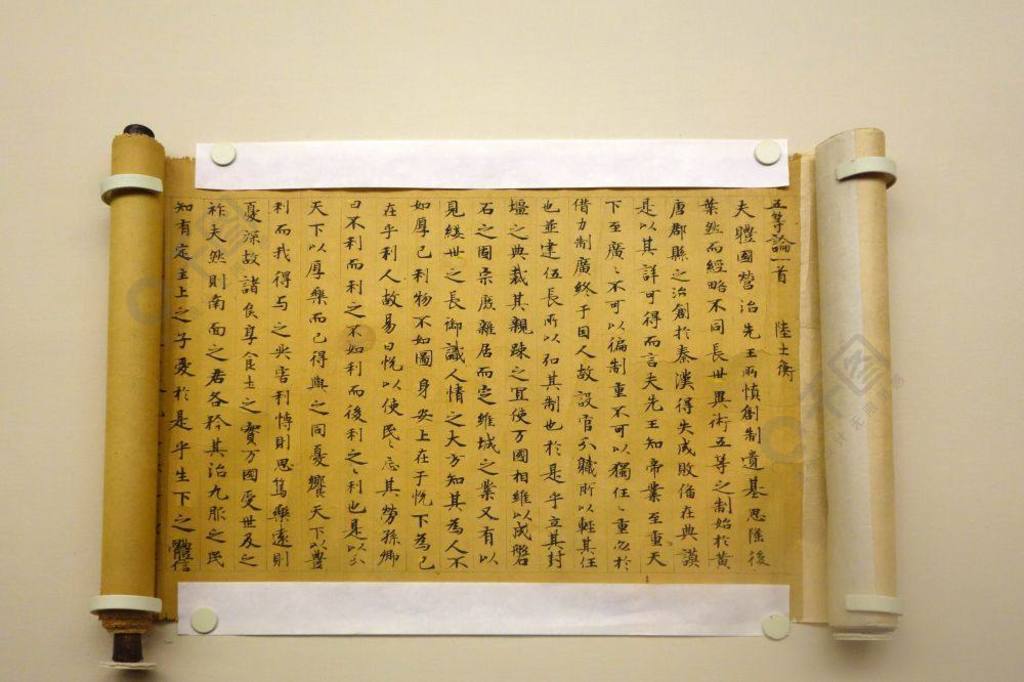 五等論一首 陸士衡
夫體國營治先王所慎創制遺基思隆後
葉然而經略不同長世異術五等之制始於黃
唐郡縣之治創於秦漢得失成敗俻在典謨
是以其詳可得而言夫先王知帝業至重天
下至廣〻不可以偏制重不可以獨任〻重必於
借力制廣終于因人故設官分職所以輕其任
也並建伍長所以弘其制也於是乎立其封
壃之典裁其親踈之宜使万國相維以成磐
石之固宗庶雜居而定維城之業又有以
見綏世之長御識人情之大方知其為人不
如厚己利物不如圖身安上在于悅下為己
在乎利人故易曰悅以使民〻忘其勞孫卿
曰不利而利之不如利而後利之〻利也是以分
天下以厚樂而己得與之同憂饗天下以豊
利而我得与之共害利博則恩篤樂遠則
憂深故諸侯享食土之實万國受世及之
祚夫然則南面之君各矜其治九服之民
知有定主上之子愛於是乎生下之體信